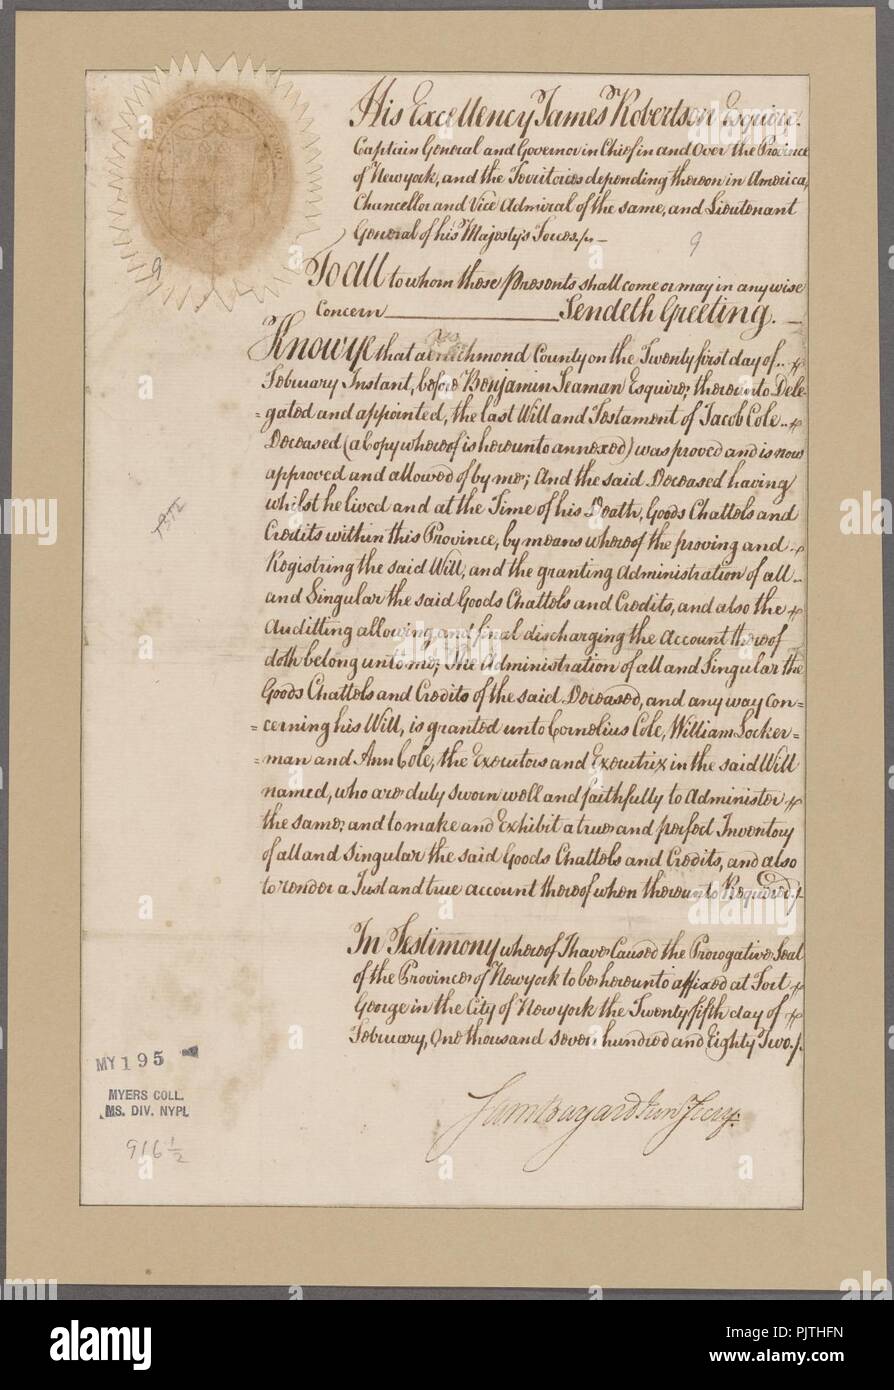 His Excellency James Robertson Esquire.
Captain General and Governor in Chief in and Over the Province
of Newyork, and the Territories depending thereon in America,
Chancellor and Vice Admiral of the same, and Lieutenant
General of his Majesty's Forces./. —
9
9
To all to whom these Presents shall come or may in any wise
Concern Sendeth Greeting. —
Know Ye that at Richmond County on the Twenty first day of
February Instant, before Benjamin Seaman Esquire, thereunto Dele-
= gated and appointed, the last Will and Testament of Jacob Cole
Deceased (a Copy whereof is hereunto annexed) was proved and is now
approved and allowed of by me; And the said Deceased having
whilst he lived and at the Time of his Death, Goods Chattels and
Credits within this Province, by means whereof the proving and
Registring the said Will, and the granting Administration of all
and Singular the said Goods Chattels and Credits, and also the
Auditting allowing and final discharging the Account thereof
doth belong unto me; The Administration of all and Singular the
Goods Chattels and Credits of the said Deceased, and any way con=
= cerning his Will, is granted unto Cornelius Cole, William Locker=
= man and Ann Cole, the Executors and Executrix in the said Will
named, who are duly sworn well and faithfully to Administer
the same; and to make and Exhibit a true and perfect Inventory
of all and Singular the said Goods Chattels and Credits, and also
to render a Just and true account thereof when thereunto Required./.
In Testimony whereof I have Caused the Prerogative Seal
of the Province of Newyork to be hereunto affixed at Fort
George in the City of Newyork the Twenty fifth day of
February, One thousand seven hundred and Eighty Two./.
Sam Bayard Jun Secry.
MY 195
MYERS COLL.
MS. DIV. NYPL
916 1/2
alamy
alamy
Image ID: PJTHFN
www.alamy.com